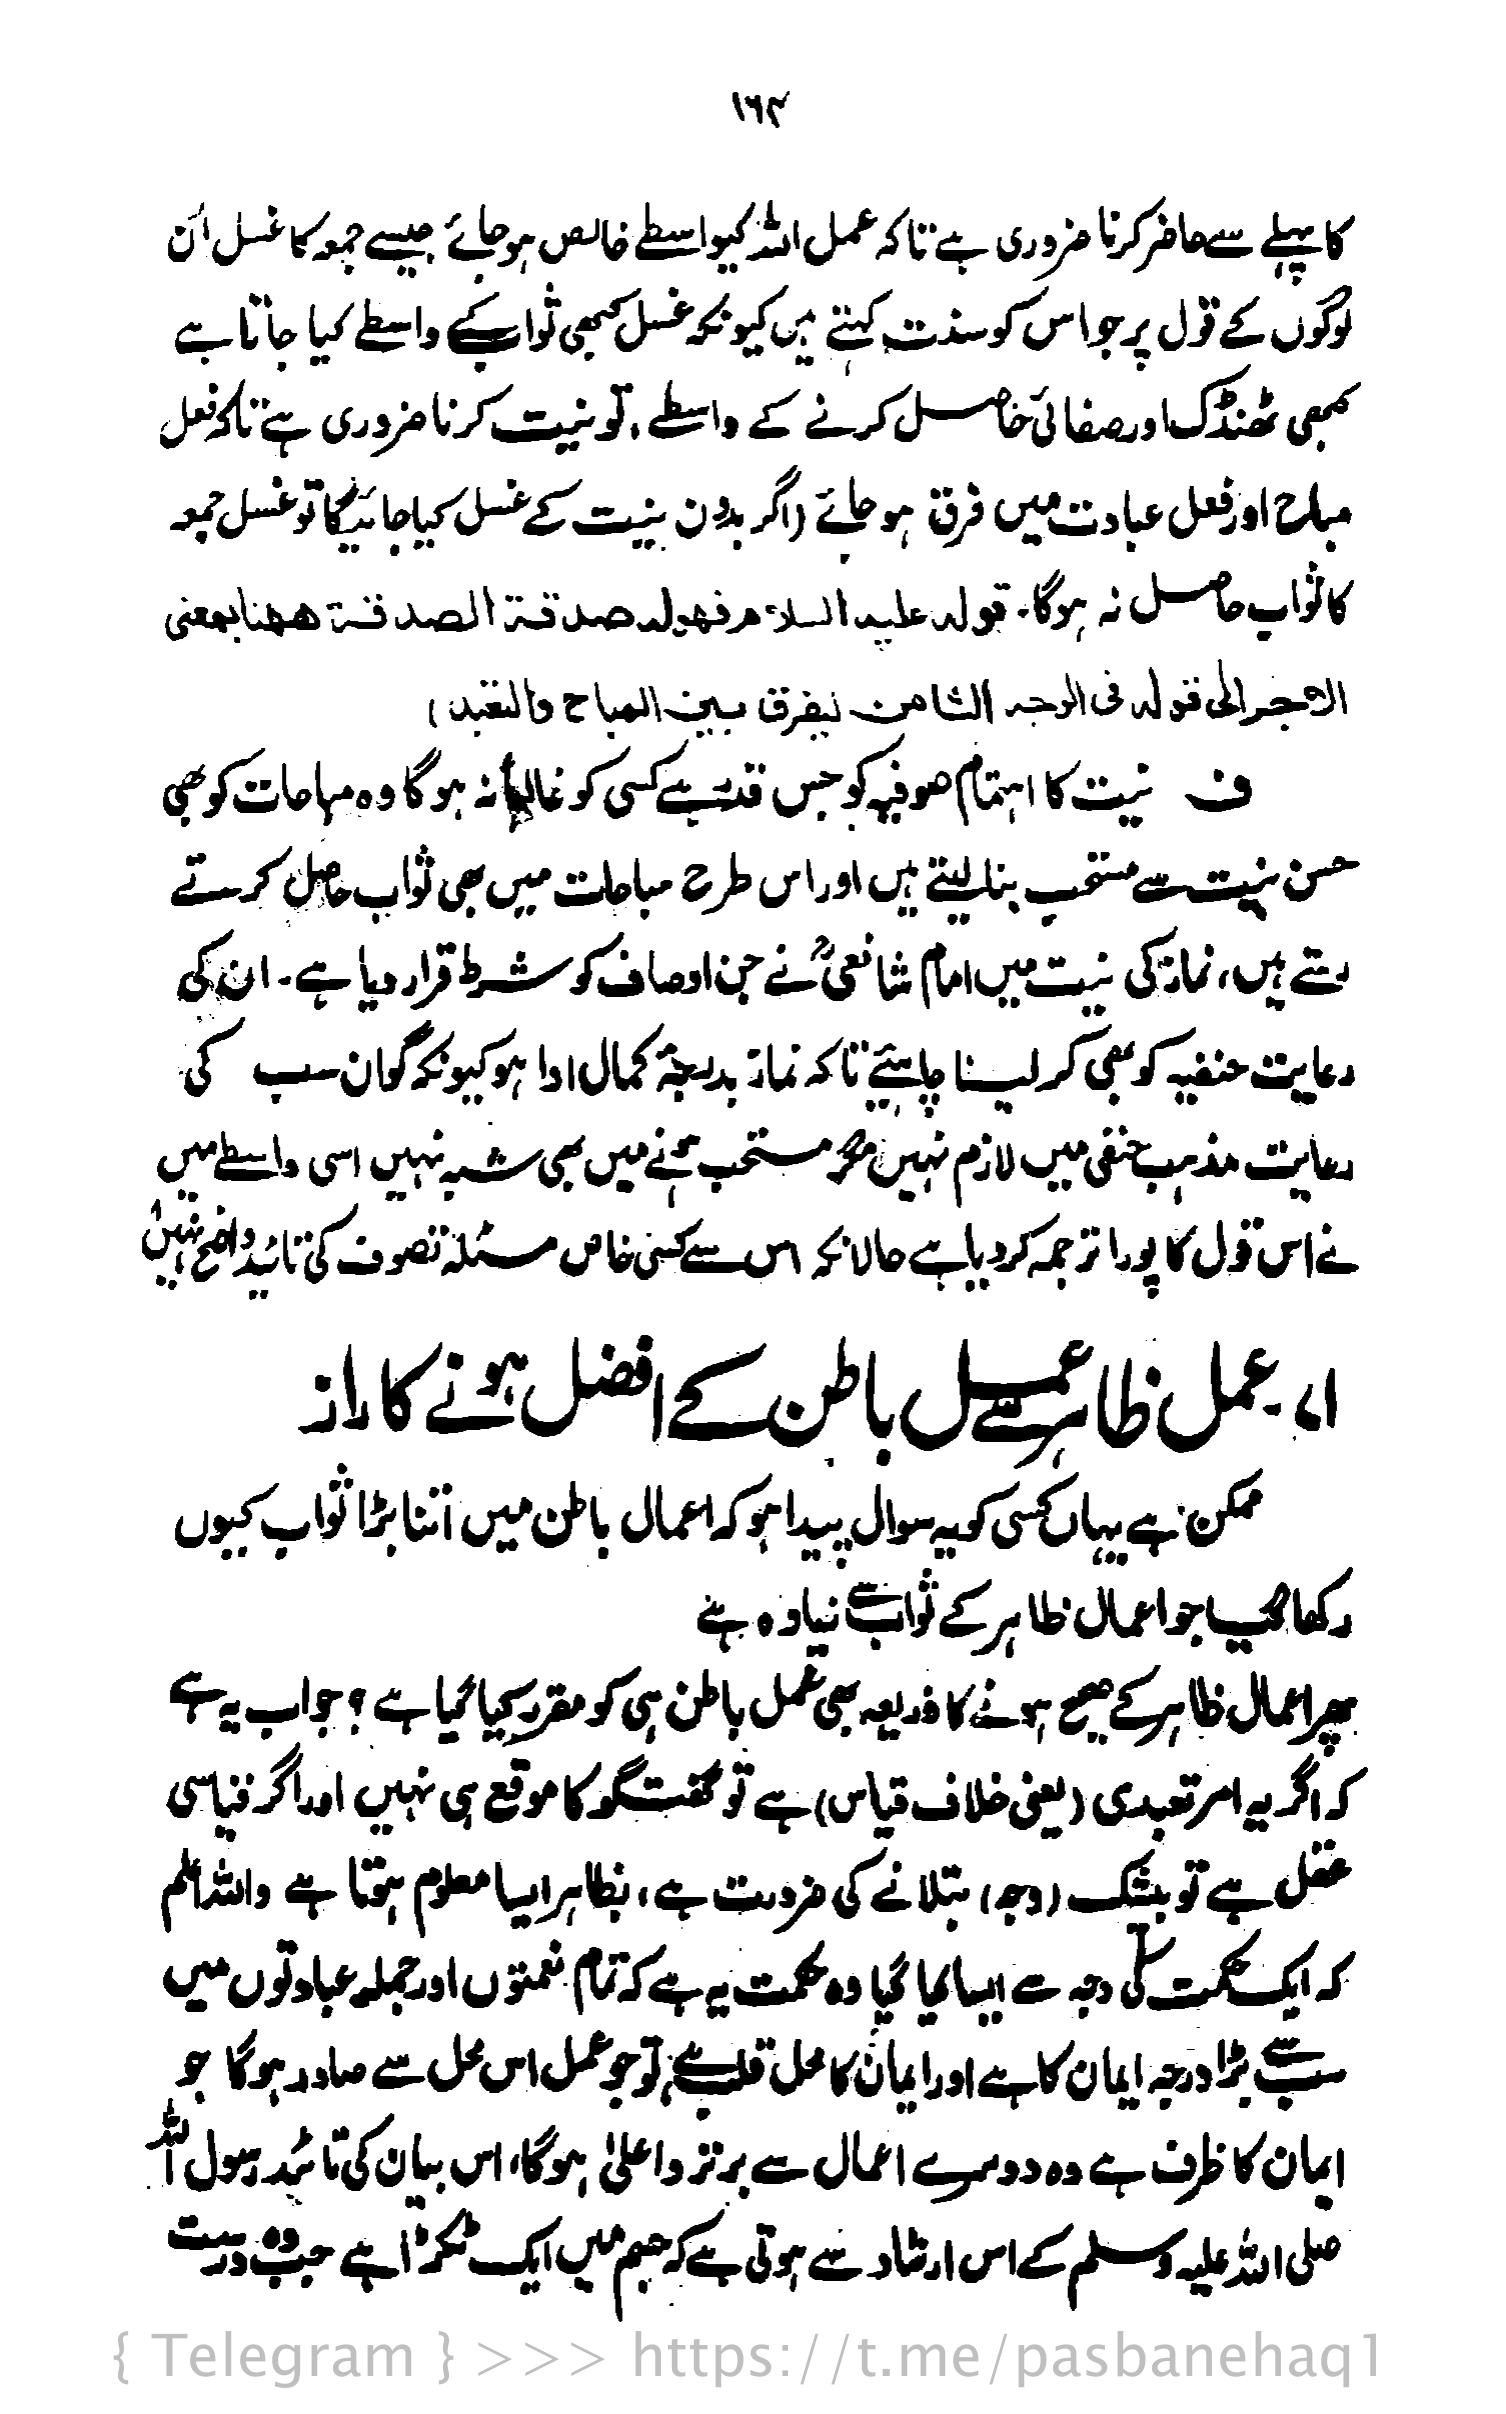 ۱۶۴
کا پہلے سے حاضر کرنا ضروری ہے تاکہ عمل اللہ کیواسطے خالص ہو جائے جیسے جمعہ کا غسل اُن
لوگوں کے قول پر جو اس کو سنت کہتے ہیں کیونکہ غسل کبھی ثواب کے واسطے کیا جاتا ہے
کبھی ٹھنڈک اور صفائی حاصل کرنے کے واسطے، تو نیت کرنا ضروری ہے تاکہ فعل
مباح اور فعل عبادت میں فرق ہو جائے (اگر بدون نیت کے غسل کیا جائیگا تو غسل جمعہ
کا ثواب حاصل نہ ہوگا۔ قوله عليه السلام فهو له صدقة الصدقة ههنا بمعنى
الاجر الى قوله فى الوجه الثامن ليفرق بين المباح والتعبد)
ف نیت کا اہتمام صوفیہ کو جس قدر ہے کسی کو غالباً نہ ہوگا وہ مباحات کو بھی
حسن نیت سے مستحب بنا لیتے ہیں اور اس طرح مباحات میں بھی ثواب حاصل کرتے
رہتے ہیں، نماز کی نیت میں امام شافعیؒ نے جن اوصاف کو شرط قرار دیا ہے۔ ان کی
رعایت حنفیہ کو بھی کر لینا چاہئیے تاکہ نماز بدرجۂ کمال ادا ہو کیونکہ گو ان سب کی
رعایت مذہب حنفی میں لازم نہیں مگر مستحب ہونے میں بھی شبہ نہیں اسی واسطے میں
نے اس قول کا پورا ترجمہ کردیا ہے حالانکہ اس سے کسی خاص مسئلہ تصوف کی تائید واضح نہیں
۷۱۔ عمل ظاہر سے عمل باطن کے افضل ہونے کا راز
ممکن ہے یہاں کسی کو یہ سوال پیدا ہو کہ اعمال باطن میں اتنا بڑا ثواب کیوں
رکھا گیا جو اعمال ظاہر کے ثواب سے زیادہ ہے
پھر اعمال ظاہر کے صحیح ہونے کا ذریعہ بھی عمل باطن ہی کو مقرر کیا گیا ہے؟ جواب یہ ہے
کہ اگر یہ امر تعبدی (یعنی خلاف قیاس) ہے تو گفتگو کا موقع ہی نہیں اور اگر قیاسی
عقل ہے تو بیشک (وجہ) بتلانے کی ضرورت ہے، بظاہر ایسا معلوم ہوتا ہے واللہ اعلم
کہ ایک حکمت کی وجہ سے ایسا کیا گیا وہ حکمت یہ ہے کہ تمام نعمتوں اور جملہ عبادتوں میں
سب سے بڑا درجہ ایمان کا ہے اور ایمان کا محل قلب ہے، تو جو عمل اس محل سے صادر ہوگا جو
ایمان کا ظرف ہے وہ دوسرے اعمال سے برتر و اعلیٰ ہوگا، اس بیان کی تائید رسول اللہ
صلی اللہ علیہ وسلم کے اس ارشاد سے ہوتی ہے کہ جسم میں ایک ٹکڑا ہے جب وہ درست
{ Telegram } >>> https://t.me/pasbanehaq1